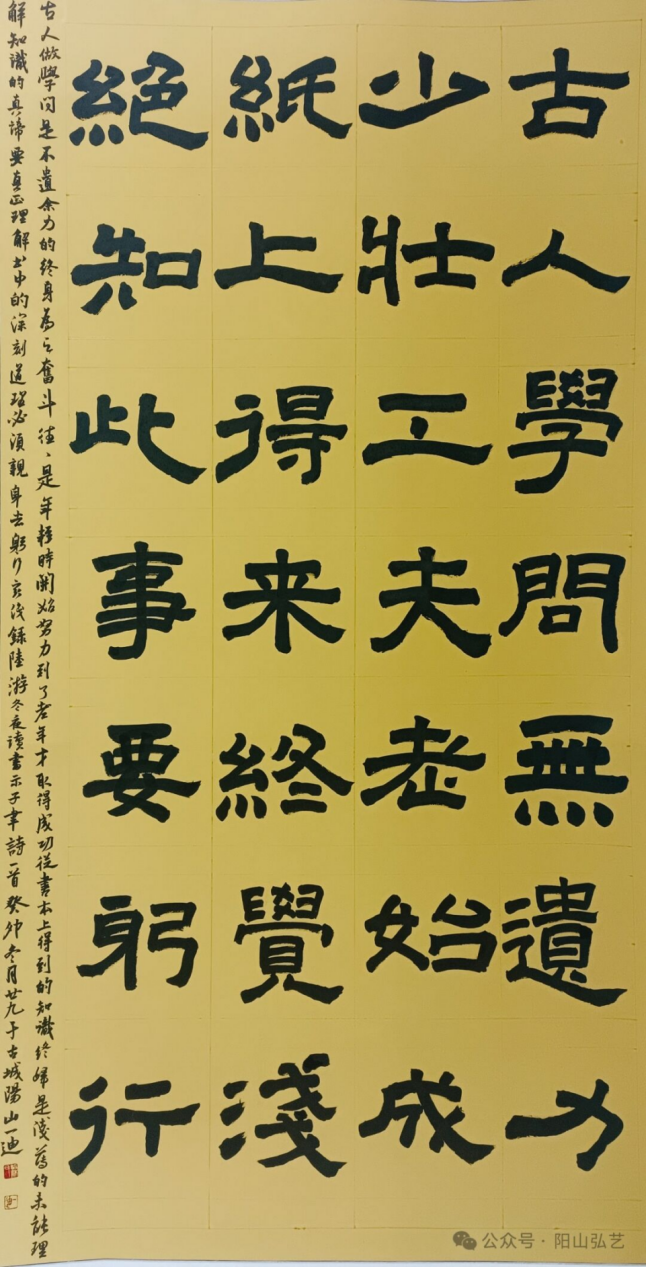 古人學問無遺力
少壯工夫老始成
紙上得来終覺淺
絶知此事要躬行
古人做學问是不遺余力的终身為之奮斗往、是年轻時開始努力到了老年才取得成功從書本上得到的知識终歸是淺薄的未能理
解知識的真諦要真正理解书中的深刻道理必須親身去躬行实践錄陸游冬夜讀書示子聿詩一首癸卯冬月廿九于古城陽山一迪
公众号·阳山弘艺